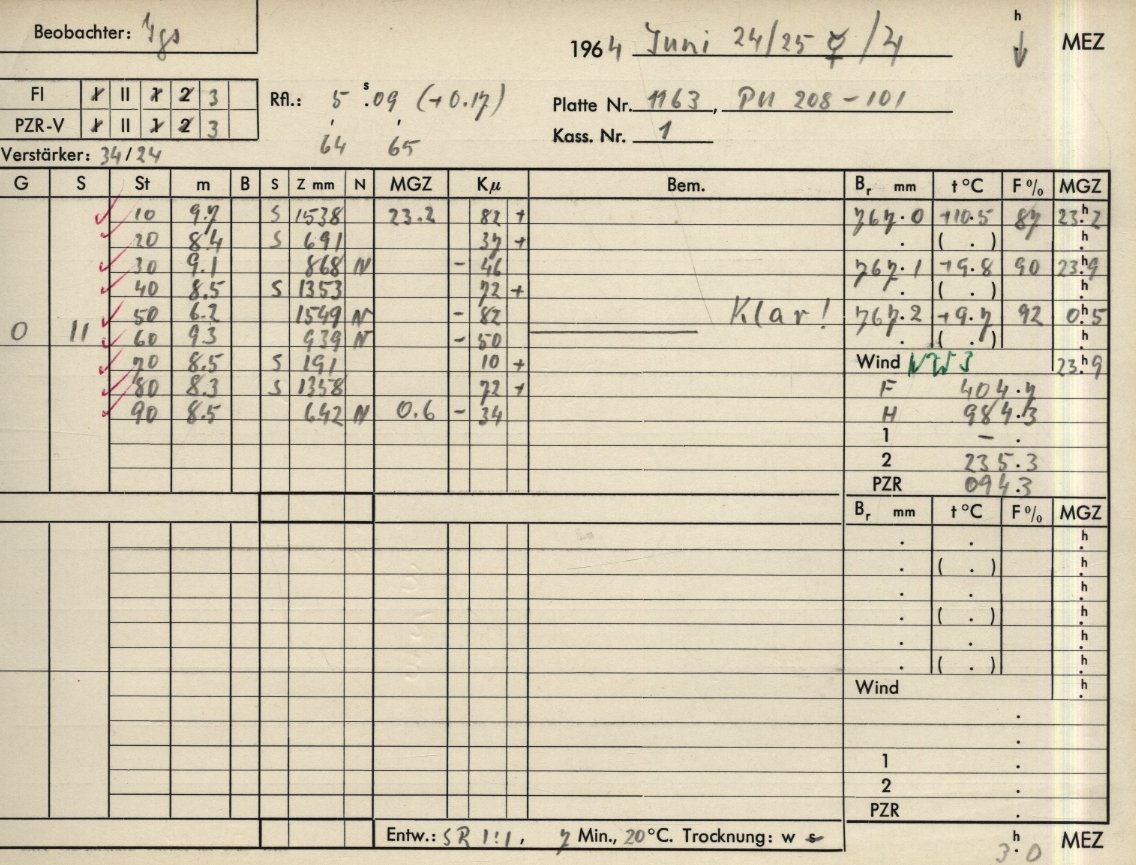 Beobachter: Jgs
1964 Juni 24/25 ☿ / 4 h MEZ
FI 1 II 1 2 3
PZR-V 1 II 1 2 3
Rfl.: 5 s.09 (+0.17)
64 65
Platte Nr. 1163, PN 208-101
Kass. Nr. 1
Verstärker: 34/24
G S St m B S Z mm N MGZ Kμ Bem. Br mm t °C F % MGZ
10 9.7 S 1538 23.2 82 + 767.0 +10.5 87 23.h2
20 8.4 S 691 37 + . ( . ) .h
30 9.1 868 N - 46 767.1 +9.8 90 23.h9
40 8.5 S 1353 72 + . ( . ) .h
50 6.2 1549 N - 82 Klar! 767.2 +9.7 92 0.h5
0 II 60 9.3 939 N - 50 . ( . ) .h
70 8.5 S 191 10 + Wind NW 3 23.h9
80 8.3 S 1358 72 + F 404.7
90 8.5 642 N 0.6 - 34 H 984.3
1 - .
2 235.3
PZR 094.3
Br mm t °C F % MGZ
. . .h
. ( . ) .h
. . .h
. ( . ) .h
. . .h
. ( . ) .h
Wind .h
.
.
1 .
2 .
PZR .
Entw.: SR 1:1, 7 Min., 20°C. Trocknung: w s
3.h0 MEZ